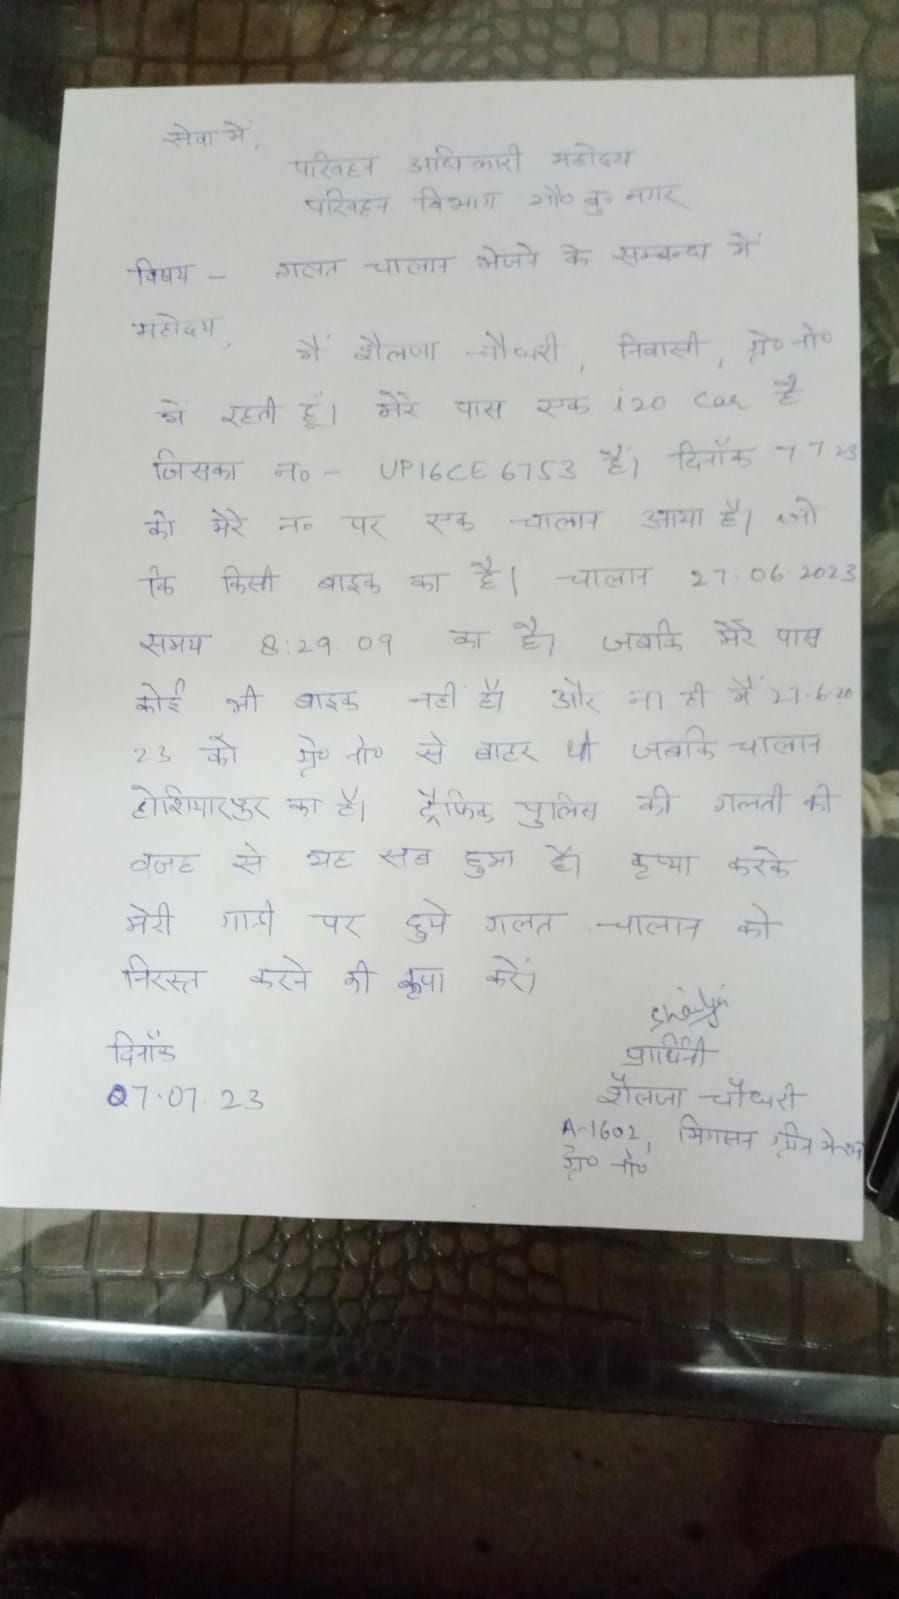 सेवा में,
परिवहन अधिकारी महोदय
परिवहन विभाग गौ० बु० नगर
विषय - गलत चालान भेजने के सम्बन्ध में
महोदय,
मैं शैलजा चौधरी, निवासी, ग्रे० नो०
में रहती हूं। मेरे पास एक i20 Car है
जिसका न० - UP16CE 6753 हैं। दिनाँक 7 7 23
को मेरे न० पर एक चालान आया है। जो
कि किसी बाइक का है। चालान 27.06.2023
समय 8:29.09 का है। जबकि मेरे पास
कोई भी बाइक नहीं है। और ना ही मैं 27.6.20
23 को ग्रे० नो० से बाहर थी जबकि चालान
होशियारपुर का है। ट्रैफिक पुलिस की गलती की
वजह से यह सब हुआ है। कृप्या करके
मेरी गाडी पर हुये गलत चालान को
निरस्त करने की कृपा करें।
दिनाँक
07.07.23
प्रार्थिनी
शैलजा चौधरी
A-1602, मिगसन ग्रीन
ग्रे० नो०